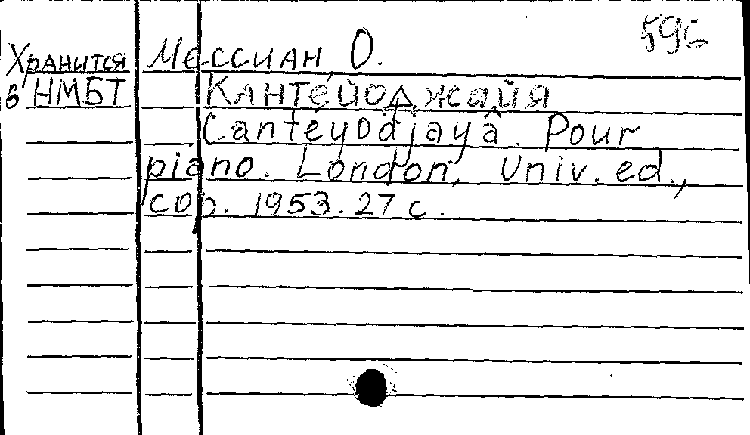 596
Хранится Мессиан, О.
в НМБТ Кантейоджайя
Cantéyodjayâ. Pour
piano. London, Univ. ed.,
cop. 1953. 27 с.